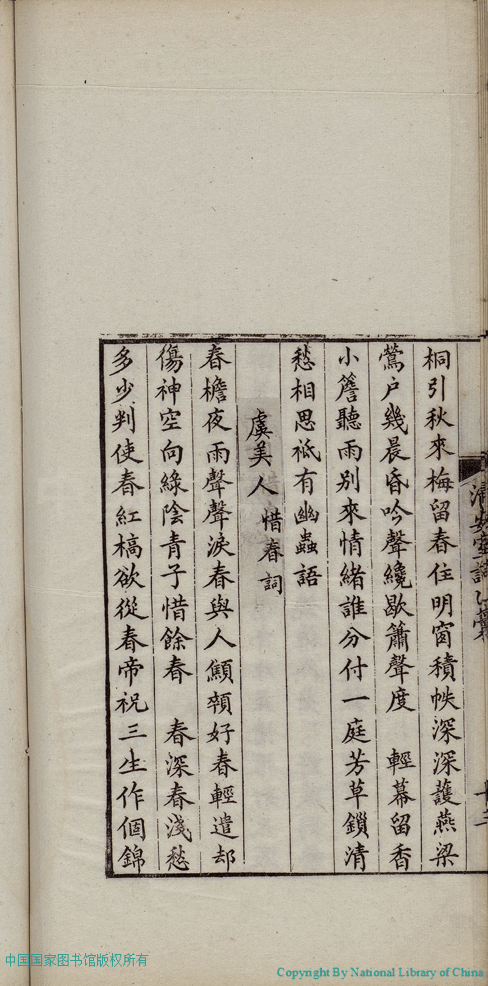 桐引秋來梅留春住明窗積帙深深護燕梁
鶯户幾晨昏吟聲纔歇簫聲度　輕幕留香
小簷聽雨别來情緒誰分付一庭芳草鎖清
愁相思祗有幽蟲語
虞美人 惜春詞
春檐夜雨聲聲淚春與人顦顇好春輕遣却
傷神空向綠陰青子惜餘春　春深春淺愁
多少判使春紅槁欲從春帝祝三生作個錦
中国国家图书馆版权所有
Copyright By National Library of China